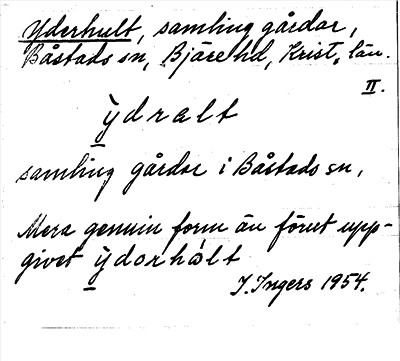 Yderhult, samling gårdar,
Båstads sn, Bjäre hd, Krist. län.
II.
ydralt
samling gårdar i Båstads sn,
Mera genuin form än förut upp-
givet ydorhålt
I. Ingers 1954.